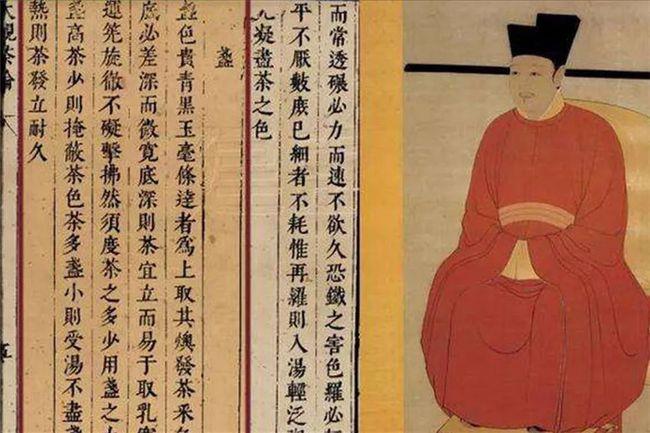 而常透碾必力而速不欲久恐鐵之害色羅必
平不厭數庶已細者不耗惟再羅則入湯輕泛
光凝盡茶之色
盞
盞色貴青黑玉毫條達者為上取其燠發茶采色
底必差深而微寬底深則茶宜立而易于取乳寬
運筅旋徹不礙擊拂然須度茶之多少用盞之
盞高茶少則掩蔽茶色茶多盞小則受湯不盡盞
熱則茶發立耐久
大觀茶論 五